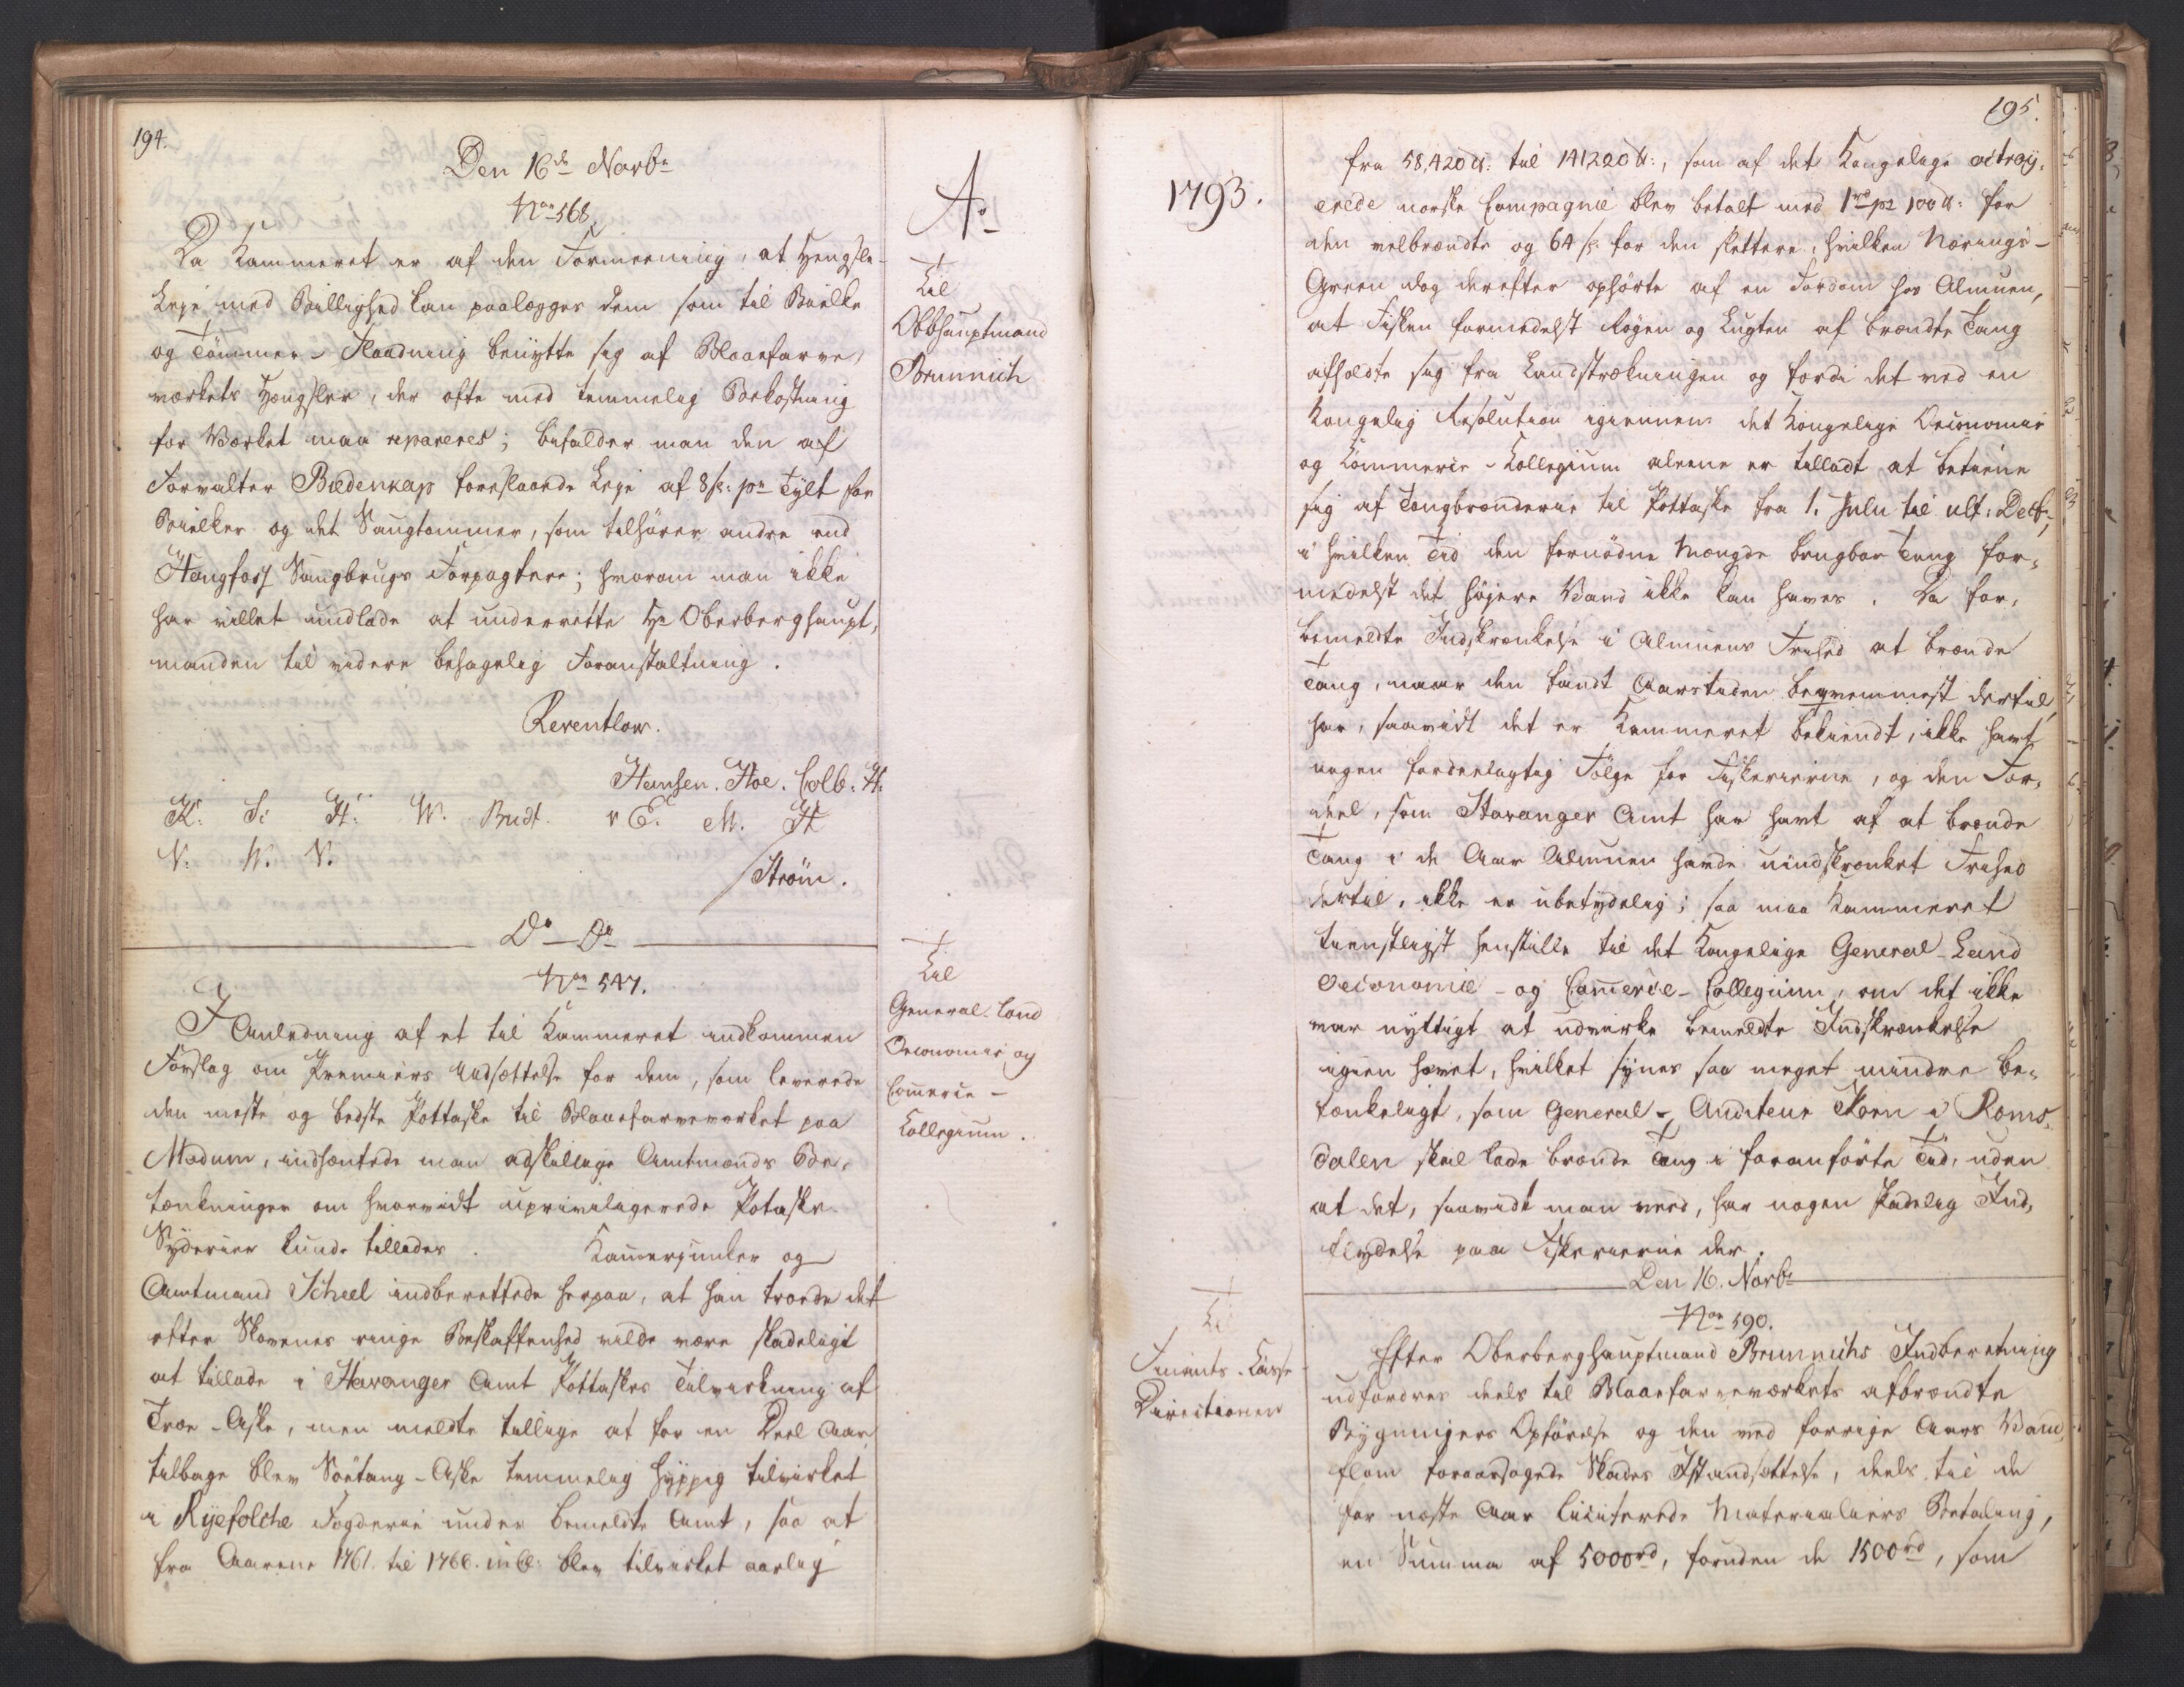 194.
Den 16de Novbr
Nor 568.
Da Kammeret er af den Formeening, at Hengsle-
Leje med Billighed kan paalægges dem som til Bielke
og Tömmer-Flaadning benytte sig af Blaafarve,
værkets Hængsler, der ofte med temmelig Bekostning
for Værket maa repareres; bifalder man den af
Forvalter Bredenkap foreslaaede Leje af 8 s: pr Tylt for
Bielker og det Saugtømmer, som tilhører andre end
Haugfoss Saugbrugs Forpagtere; hvorom man ikke
har villet undlade at underrette Hr Oberberghaupt,
manden til videre behagelig Foranstaltning.
Reventlow.
Hansen. Hoe. Colb: H:
K: S: H: W. Brudt. v E. M. H
N: W. V.
/Ström.
Ao
Til
Obbhauptmand
Brunnich
Do Do
Nor 547.
I Anledning af et til Kammeret indkommen
Forslag om Premiers Udsættelse for dem, som leverede
den meste og bedste Pottaske til Blaafarveværket paa
Modum, indhentede man adskillige Amtmænds Be,
tænkninger om hvorvidt uprivilegerede Potaske
Syderier kunde tillades. Kammerjunker og
Amtmand Scheel indberettede herpaa, at han troede det
efter Skovenes ringe Beskaffenhed vilde være skadeligt
at tillade i Stavanger Amt Pottaskes Tilvirkning af
Træe-Aske, men meldte tillige at for en Deel Aar
tilbage blev Söetang-Aske temmelig hyppig tilvirket
i Ryefolche Fogderie under bemeldte Amt, saa at
fra Aarene 1761. til 1766. incl: blev tilvirket aarlig
Til
General-Land
Oeconomie og
Commerce-
Collegium.
195.
1793.
fra 58,420 lb: til 141220 lb:, som af det Kongelige octroy,
erede norske Compagnie blev betalt med 1 rd pr 100 lb: for
den velbrændte og 64 s: for den slettere, hvilken Nærings-
Green dog derefter ophørte af en Fordom hos Almuen,
at Fisken formedelst Røgen og Lugten af brændte Tang
afholdte sig fra Landstrækningen og fordi det ved en
Kongelig Resolution igiennem det Kongelige Oeconomie
og Commerce-Collegium aleene er tilladt at betiene
sig af Tangbrænderie til Pottaske fra 1. Julii til ult: Decbr,
i hvilken Tid den fornødne Mængde brugbar Tang for,
medelst det højere Vand ikke kan haves. Da for,
bemeldte Indskrænkelse i Almuens Frihed at brænde
Tang, naar den fandt Aarstiden beqvemmest dertil,
har, saavidt det er Kammeret bekiendt, ikke havt
nogen fordeelagtig Følge for Fiskerierne, og den For,
deel, som Stavanger Amt har havt af at brænde
Tang i de Aar Almuen havde uindskrænket Frihed
dertil, ikke er ubetydelig; saa maa Kammeret
tienstligst henstille til det Kongelige General-Land
Oeconomie- og Commerce-Collegium, om det ikke
var nyttigt at udvirke bemeldte Indskrænkelse
igien hævet, hvilket synes saa meget mindre be,
tænkeligt, som General-Auditeur Koren i Roms,
dalen skal lade brænde Tang i foranførte Tid, uden
at det, saavidt man veed, har nogen skadelig Ind,
flydelse paa Fiskerierne der.
Den 16. Novbr
Nor 590.
Efter Oberberghauptmand Brunnichs Indberetning
udfordres deels til Blaafarveværkets afbrændte
Bygningers Opførelse og den ved forrige Aars Vand,
flom foraarsagede Skades Istandsættelse, deels til de
for næste Aar liciterede Materialiers Betaling,
en Summa af 5000 rd, foruden de 1500 rd, som
Til
Finants-Casse
Directionen